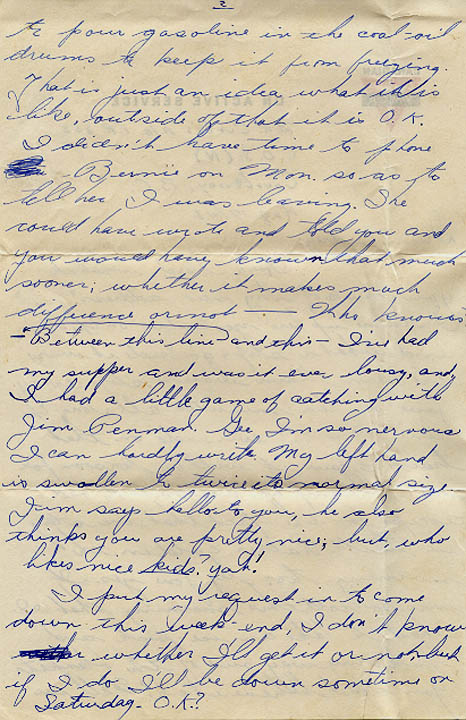 2
to pour gasoline in the coal-oil
drums to keep it from freezing.
That is just an idea what it is
like, outside of that it is O.K.
I didn't have time to phone
Bernie on Mon. so as to
tell her I was leaving. She
could have wrote and told you and
you would have known that much
sooner; whether it makes much
difference or not — Who knows
- Between this line and this - I've had
my supper and was it ever lousy, and,
I had a little game of catching with
Jim Penman. Gee I'm so nervous
I can hardly write. My left hand
is swollen to twice its normal size
Jim says hello to you, he also
thinks you are pretty nice; but, who
likes nice kids? yah!
I put my request in to come
down this week-end, I don't know
whether I'll get it or not but
if I do I'll be down sometime on
Saturday. O.K.?
ON ACTIVE SERVICE